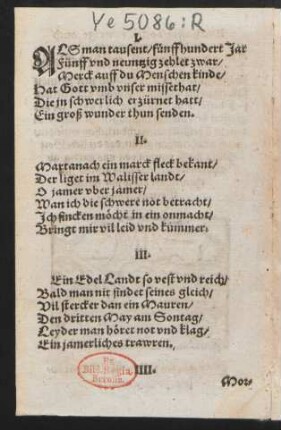 Ye 5086:R
I.
ALS man tausent/fünffhundert Jar
Fünff vnd neunzig zehlet zwar/
Merck auff du Menschen kinde/
Hat Gott vmb vnser missethat/
Die jn schwerlich erzürnet hatt/
Ein groß wunder thun senden.
II.
Martanach ein marck fleck bekant/
Der liget im Walisser landt/
O jamer vber jamer/
Wan ich die schwere nöt betracht/
Jch sincken möcht in ein onmacht/
Bringt mir vil leid vnd kummer.
III.
Ein Edel Landt so vest vnd reich/
Bald man nit findet seines gleich/
Vil stercker dan ein Mauren/
Den dritten May am Sontag/
Leyder man höret not vnd klag/
Ein jamerliches trawren.
IIII.
Mor-
Bibl. Regia
Berolin.